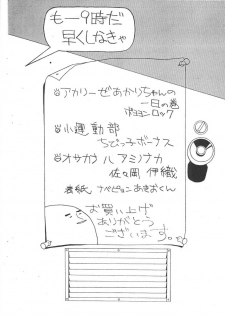 もー9時だ
早くしなきゃ
アカリーゼあかりちゃんの
一日の巻
ポヨヨンロック
小運動部
ちびっ子ボーナス
オサカナハアミノナカ
佐々岡 伊織
表紙 ナペジョンあきおくん
お買い上げ
ありがとう
ございます。